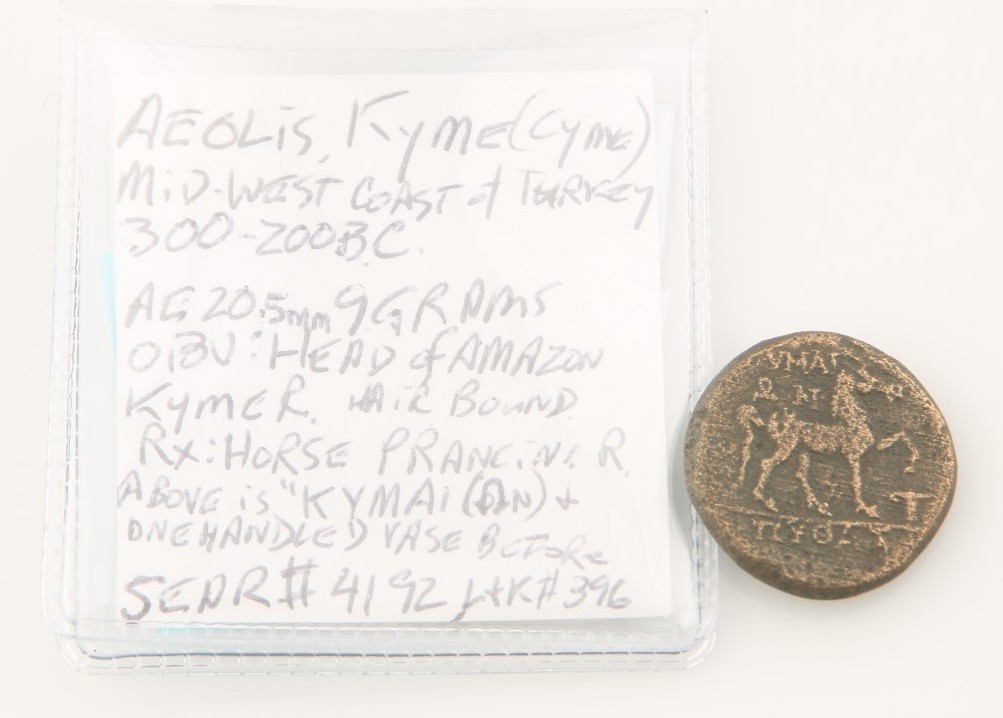 AEOLiS, Kyme (Cyme)
MiD-WEST COAST of TURKEY
300-200 B.C.
AE 20.5mm 9 GRAMS
OBV: HEAD of AMAZON
KymE R. HAiR BOUND
Rx: HORSE PRANCiNG R.
ABOVE is "KYMAI(ΩN) &
ONE HANDLED VASE BEFORE
SEAR # 4192 # 396
YMAI